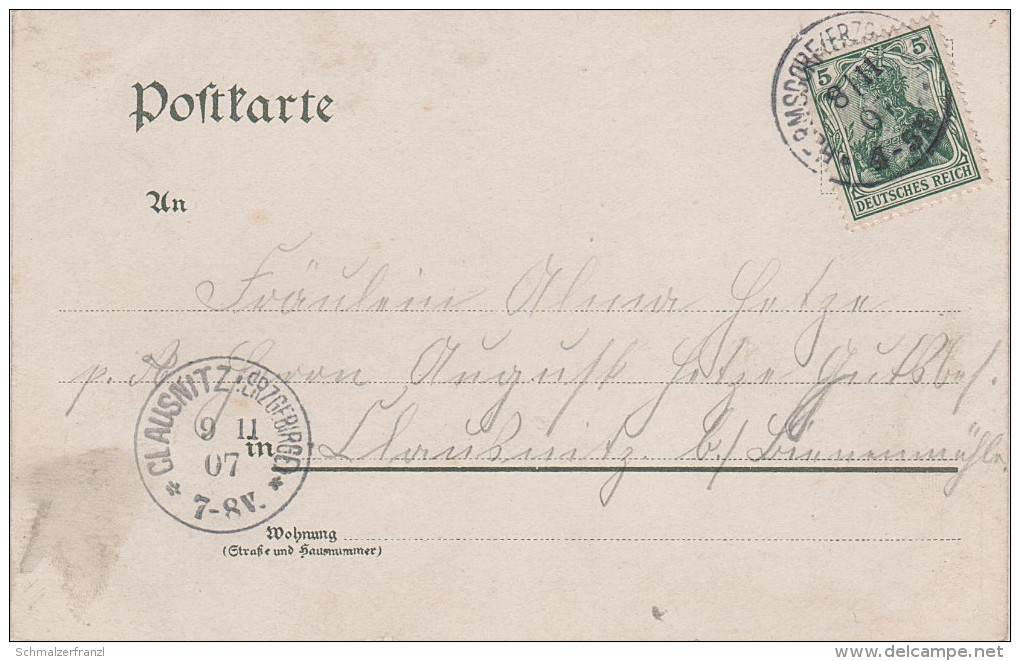 Postkarte
HERMSDORF (ERZG
8/11
07
4-5N
5 5
DEUTSCHES REICH
An
Fräulein Alma Hetze
p. A. Herrn August Hetze Gutsbes.
in Clausnitz b/ Bienenmühle
CLAUSNITZ (ERZGEBIRGE)
9 11
07
7-8V.
Wohnung
(Straße und Hausnummer)
Schmalzerfranzl
delcampe.net